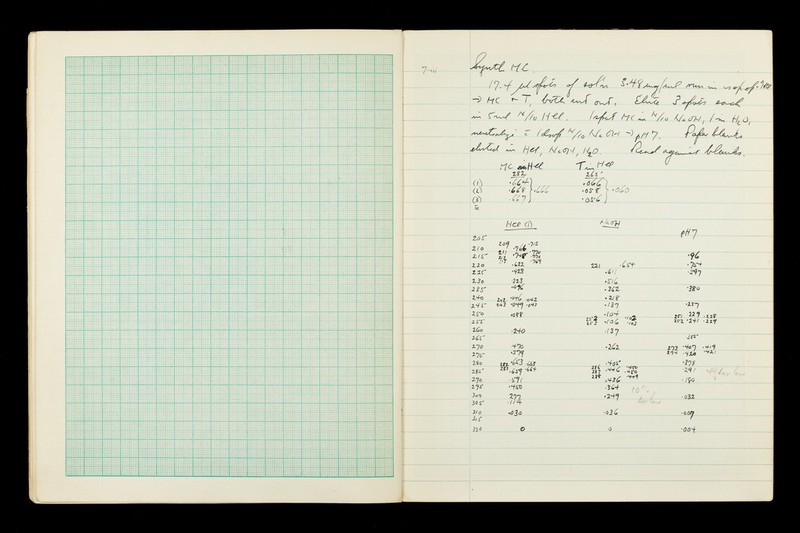 Synth MC.
17.4 µl spots of sol'n 3.48 mg/ml run in
→ MC + T, both cut out. Elute 3 spots each
in 5 ml N/10 HCl. 1 spot MC in N/10 NaOH, 1 in H2O,
neutralize 1 drop N/10 NaOH → pH 7. Paper blanks
eluted in HCl, NaOH, H2O. Read against blanks.
MC in HCl T in HCl
282 265
(1) .664 .066
(2) .668 .666 .058 .060
(3) .667 .056
HCl (1) NaOH pH 7
205
210 .766
215 .96
220 .632 221 .654 .754
225 .423 .611 .597
230 .223 .516
235 .096 .362 .380
240 .046 .042 .218
245 .049 .043 .137 .257
250 .088 .104 .102 251 .229 .228
255 .106 .103 252 .241 .229
260 .240 .137
265
270 .470 .262 273 .407 .419
275 .579 274 .420 .421
280 .653 .668 .405 .378
285 .659 .664 .446 .450 .291
290 .591 .436 .180
295 .450 .364
300 .277 .249 .032
305 .114
310 .030 .036 .009
315
320 0 0 .004